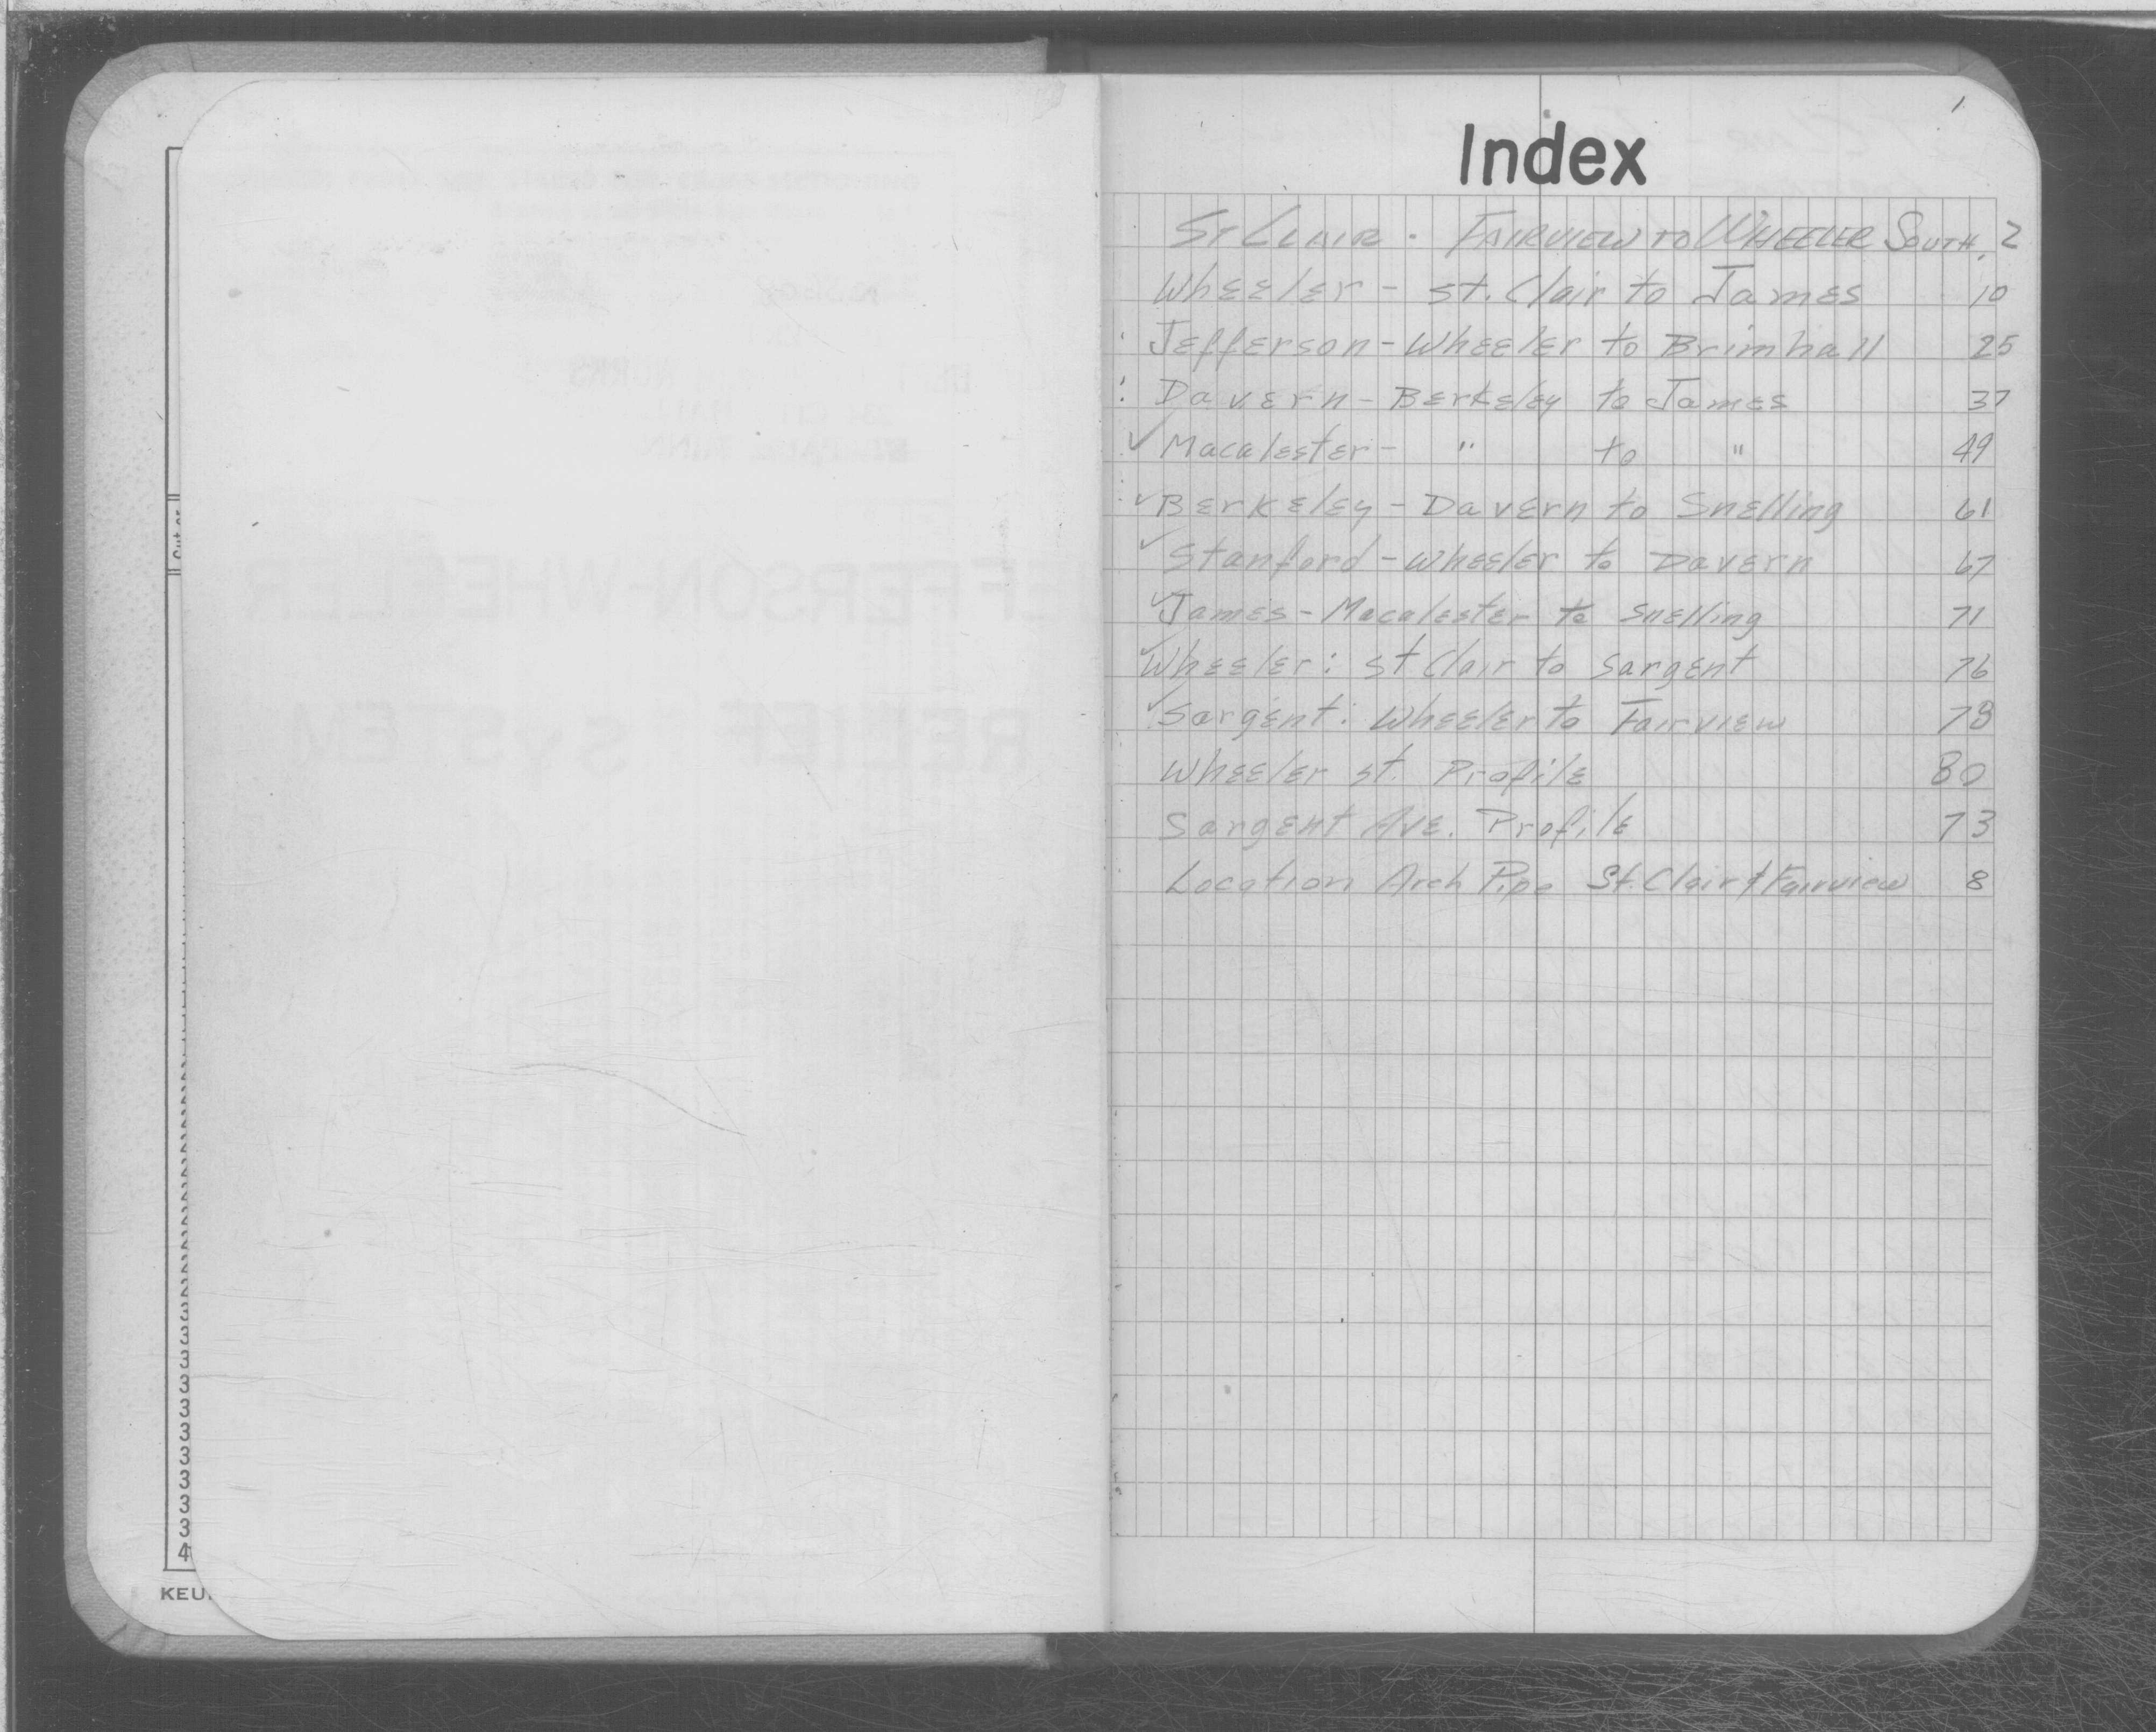 1
Index
ST CLAIR - FAIRVIEW TO WHEELER SOUTH. 2
Wheeler - St. Clair to James 10
Jefferson - Wheeler to Brimhall 25
Davern - Berkeley to James 37
✓ Macalester - " to " 49
✓ Berkeley - Davern to Snelling 61
✓ Stanford - Wheeler to Davern 67
✓ James - Macalester to Snelling 71
✓ Wheeler: St Clair to Sargent 76
✓ Sargent: Wheeler to Fairview 78
Wheeler St. Profile 80
Sargent Ave. Profile 73
Location Arch Pipe St. Clair & Fairview 8
Cut or
3
3
3
3
3
3
3
3
3
4
KEU